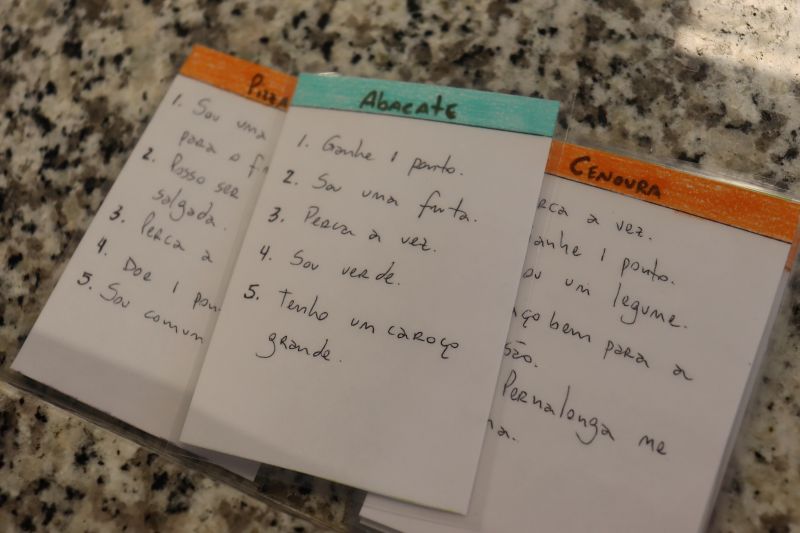 Pizza
1. Sou uma
para o f
2. Posso ser
salgada.
3. Perca a
4. Doe 1 pon
5. Sou comum
Abacate
1. Ganhe 1 ponto.
2. Sou uma fruta.
3. Perca a vez.
4. Sou verde.
5. Tenho um caroço
grande.
Cenoura
rca a vez.
anhe 1 ponto.
ou um legume.
ço bem para a
são.
Pernalonga me
ma.